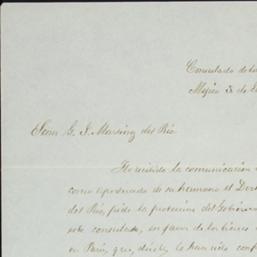 Consulado de
Mejico 3 de
Señor G. J. Martinez del Rio
He recibido la comunicacion
como apoderado de su hermano el Doct
del Rio, pide la proteccion del Gobierno
este consulado, en favor de los bienes
en Paris, que, desde le han sido conf